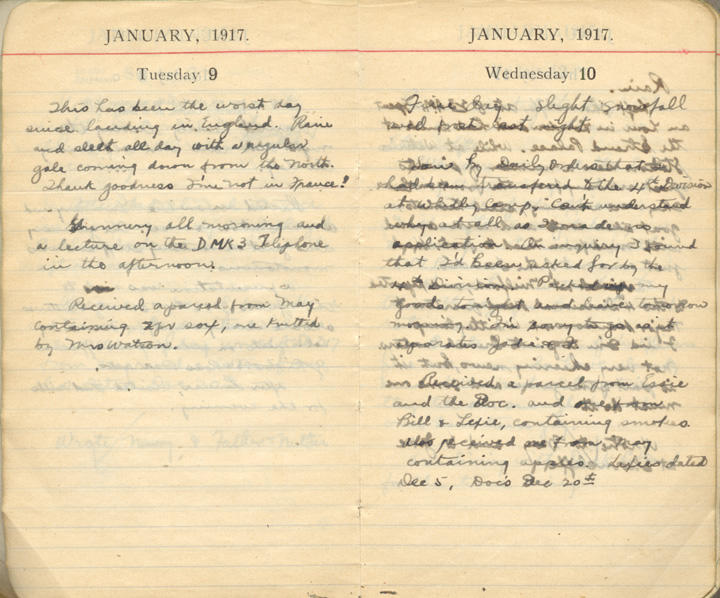 JANUARY, 1917.
Tuesday 9
This has been the worst day
since landing in England. Rain
and sleet all day with a regular
gale coming down from the North.
Thank goodness I'm not in France!
Gunnery all morning and
a lecture on the D MK 3 Telephone
in the afternoon.
Received a parcel from May
containing 2 pr sox, one knitted
by Mrs Watson.
JANUARY, 1917.
Wednesday 10
Fine day slight snowfall
last night
by Daily Orders that I
had been transferred to the 4th Division
at Whitley Camp, Can't understand
why at all, as I made no
application. On inquiry I found
that I'd been asked for by the
Division. my
goods tonight and leave tomorrow
morning.
Received a parcel from Essie
and the Doc. and one from
Bill & Lexie, containing smokes
Also received one from May
containing apples. Lexies dated
Dec 5, Doc's Dec 20th